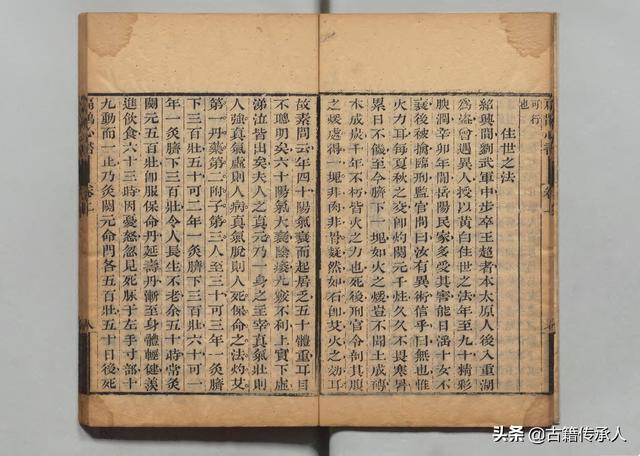 可行
也
住世之法
紹興間劉武軍中步卒王超者本太原人後入重湖
為盜曾遇異人授以黃白住世之法年至九十精彩
腴潤辛卯年間岳陽民家多受其害能日淫十女不
衰後被擒臨刑監官問曰汝有異術信乎曰無也惟
火力耳每夏秋之交卽灼關元千炷久久不畏寒暑
累日不饑至今臍下一塊如火之煖豈不聞土成磚
木成炭千年不朽皆火之力也死後刑官令剖其腹
之煖處得一塊非肉非骨凝然如石卽艾火之効耳
故素問云年四十陽氣衰而起居乏五十體重耳目
不聰明矣六十陽氣大衰陰痿九竅不利上實下虛
涕泣皆出矣夫人之真元乃一身之主宰真氣壯則
人強真氣虛則人病真氣脫則人死保命之法灼艾
第一丹藥第二附子第三人至三十可三年一灸臍
下三百壯五十可二年一灸臍下三百壯六十可一
年一灸臍下三百壯令人長生不老余五十時常灸
關元五百壯卽服保命丹延壽丹漸至身體輕健羡
進飲食六十三時因憂怒忽見死脉于左手寸部十
九動而一止乃灸關元命門各五百壯五十日後死
扁鵲心書 卷上 八
头条 @古籍传承人